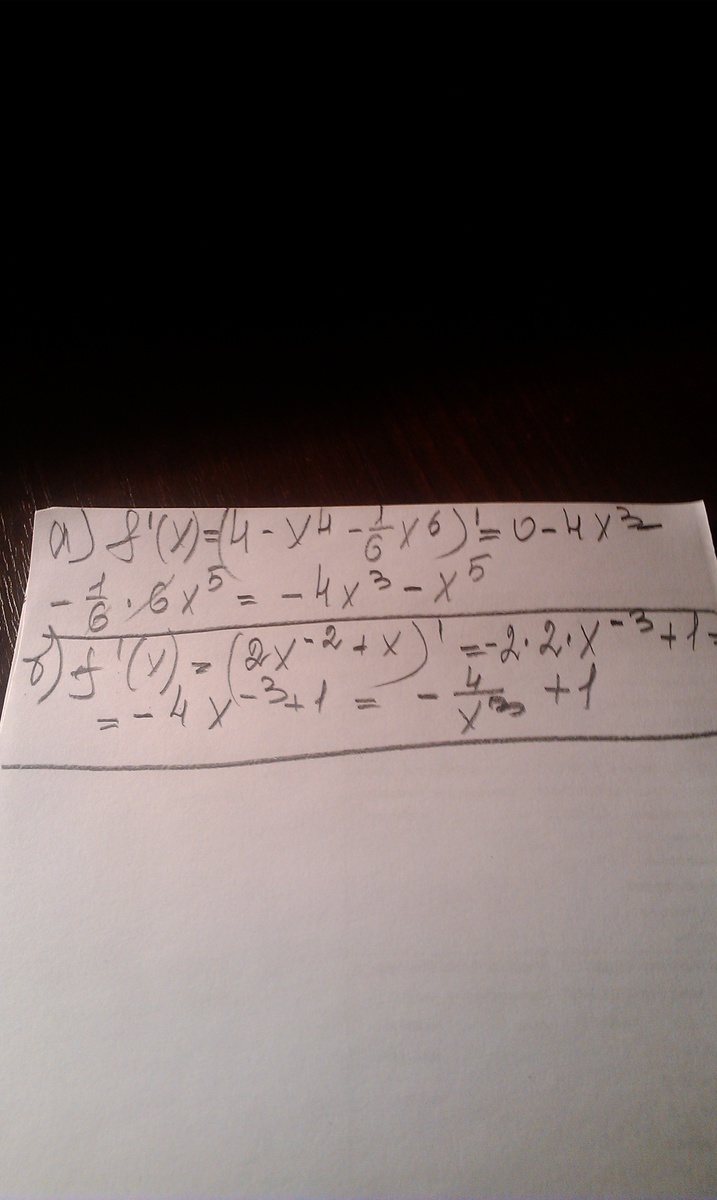 а) f'(x)=(4-x⁴-1/6x⁶)'=0-4x³-
-1/6·6x⁵=-4x³-x⁵
б) f'(x)=(2x⁻²+x)'=-2·2·x⁻³+1=
=-4x⁻³+1=-4/x³+1